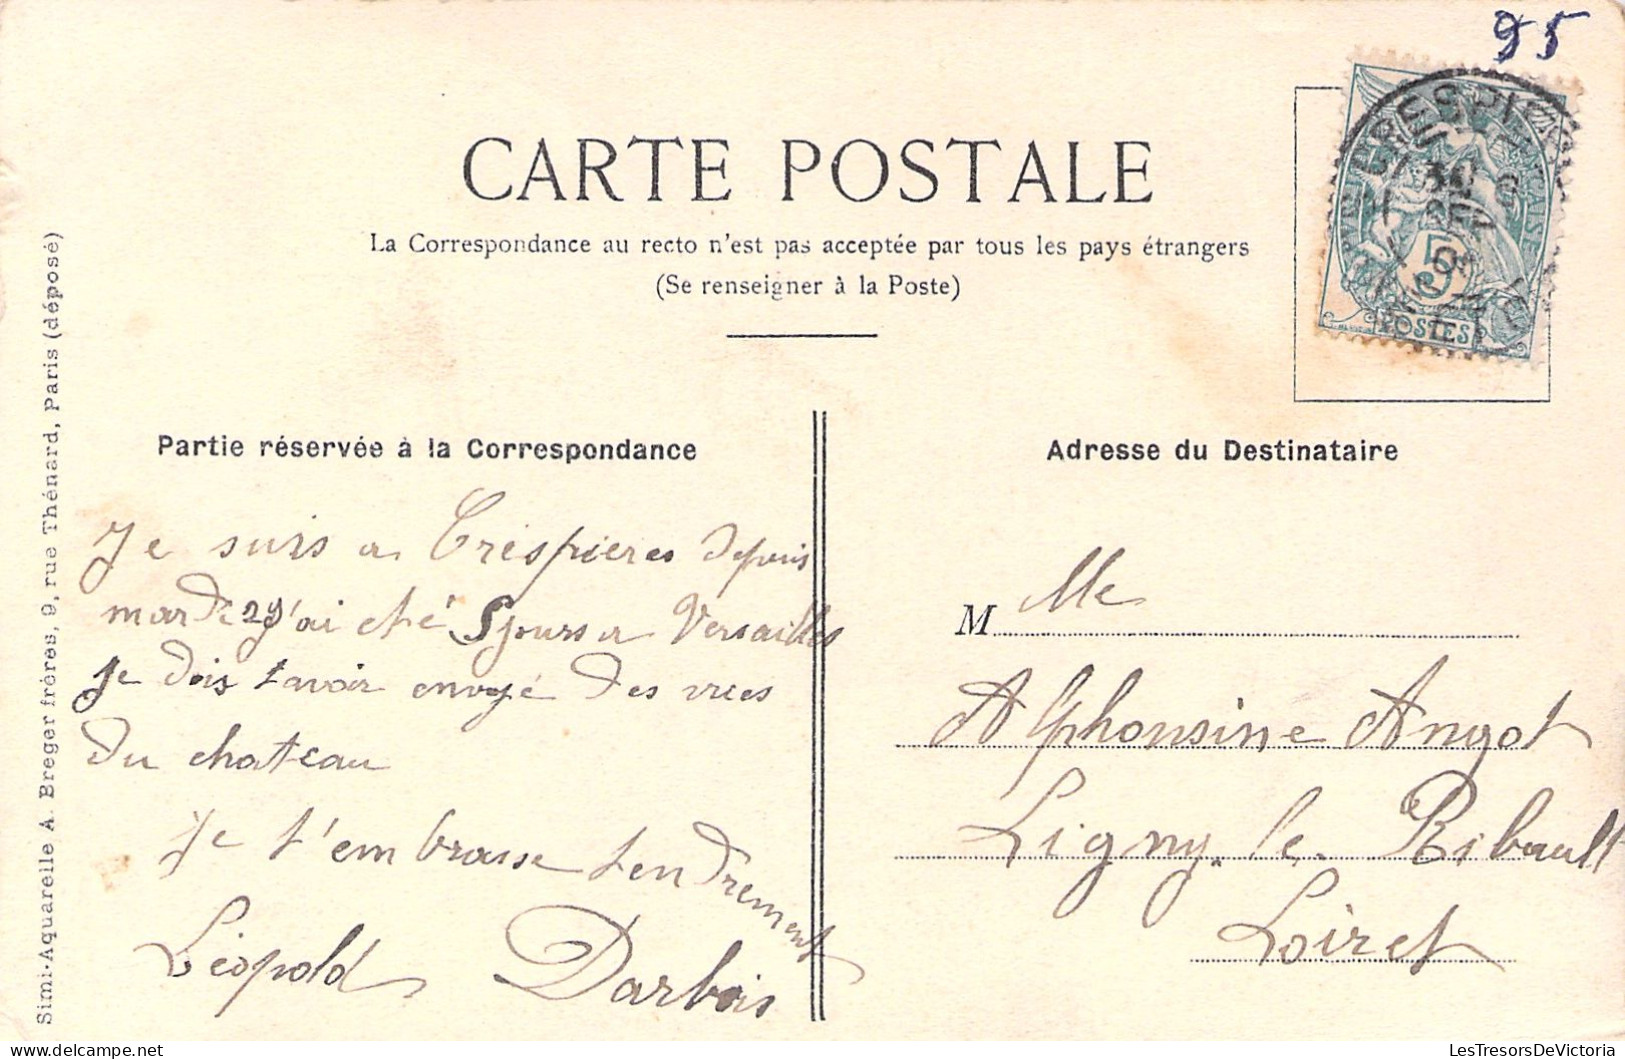 95
CARTE POSTALE
La Correspondance au recto n'est pas acceptée par tous les pays étrangers
(Se renseigner à la Poste)
CRESPIÈ
5
POSTES
Simi-Aquarelle A. Breger frères, 9, rue Thénard, Paris (déposé)
Partie réservée à la Correspondance
Je suis a Crespieres depuis
mardi 29 j'ai été 5 jours a Versailles
je dois t'avoir envoyé des vues
du chateau
je t'embrasse tendrement
Léopold Darbois
Adresse du Destinataire
M lle
Alphonsine Angot
Ligny-le-Ribault
Loiret
LesTresorsDeVictoria